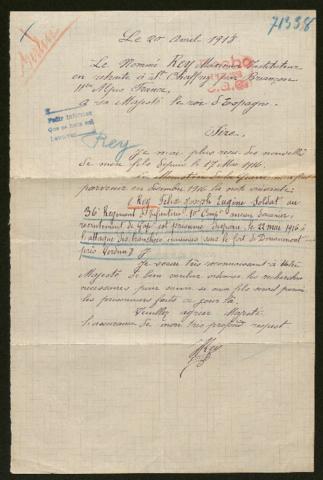 71338
Le 20 avril 1918
Le Nommé Rey Instituteur
en retraite à St Chaffrey par Briançon
Htes Alpes France
à sa Majesté le roi d'Espagne
Rey
Sire,
Je n'ai plus reçu des nouvelles
de mon fils depuis le 17 Mai 1916.
Le Ministère de la Guerre
parvenir en décembre 1916 la note suivante:
(Rey Félix Joseph Eugène Soldat au
36e Régiment d'Infanterie 10e Compie
recrutement de Gap est présumé disparu le 22 mai 1916 à
l'attaque des tranchées ennemies vers le fort de Douaumont
près Verdun.)
Je serai très reconnaissant à Votre
Majesté de bien vouloir ordonner les recherches
nécessaires pour savoir si mon fils serait parmi
les prisonniers faits ce jour là.
Veuillez agréer Majesté
l'assurance de mon très profond respect
Rey